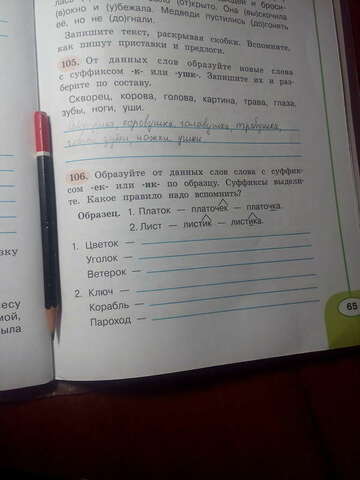 (в)окно и (у)бежала. Медведи пустились (до)гонять
её, но не (до)гнали.
Запишите текст, раскрывая скобки. Вспомните,
как пишут приставки и предлоги.
105. От данных слов образуйте новые слова
с суффиксом -к- или -ушк-. Запишите их и раз-
берите по составу.
Скворец, корова, голова, картина, трава, глаза,
зубы, ноги, уши.
коровушка, головушка, травушка,
зубки, ножки, ушки
106. Образуйте от данных слов слова с суффик-
сом -ек- или -ик- по образцу. Суффиксы выдели-
те. Какое правило надо вспомнить?
Образец. 1. Платок — платочек — платочка.
2. Лист — листик — листика.
1. Цветок —
Уголок —
Ветерок —
2. Ключ —
Корабль —
Пароход —
65